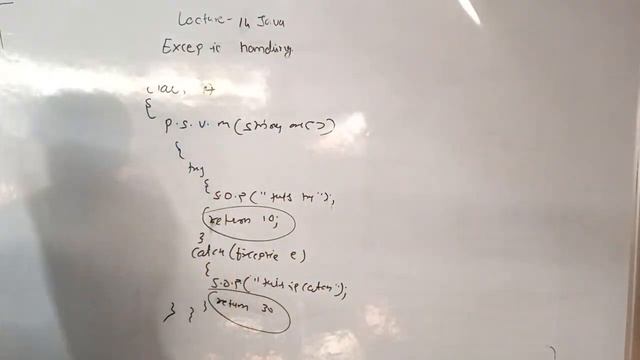 Lecture - 14 Java
Excep handling
{
p.s.v.m(string arr[])
{
try
{
S.O.P("this try");
return 10;
}
catch(Exception e)
{
S.O.P("this is catch");
return 30
} } }